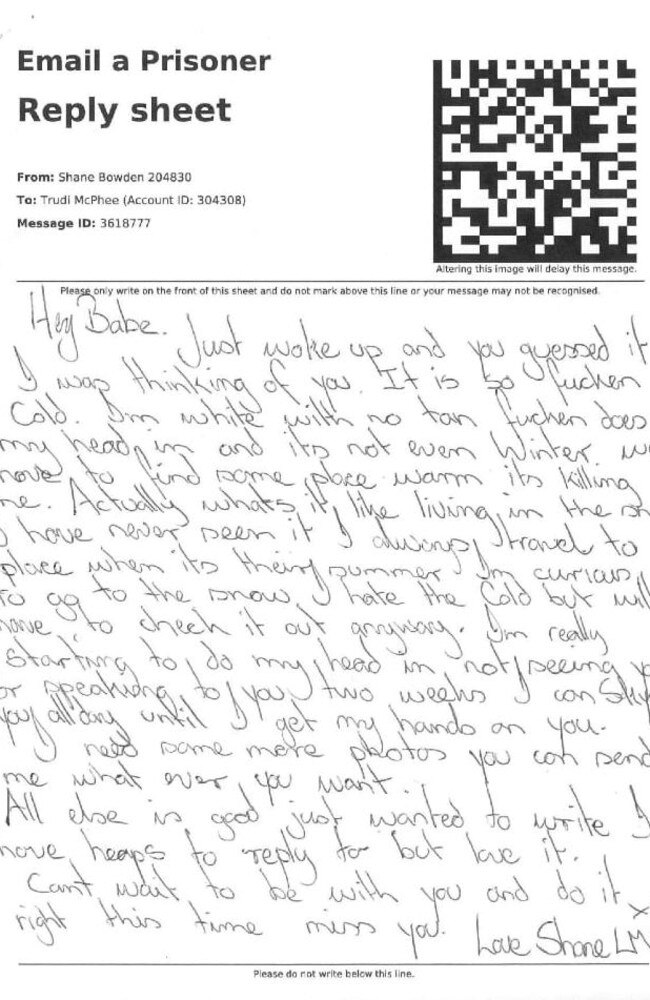 Email a Prisoner
Reply sheet
From: Shane Bowden 204830
To: Trudi McPhee (Account ID: 304308)
Message ID: 3618777
Altering this image will delay this message.
Please only write on the front of this sheet and do not mark above this line or your message may not be recognised.
Hey Babe. Just woke up and you guessed it
I was thinking of you. It is so fucken
Cold. I'm white with no tan fucken does
my head in and its not even Winter.
to find some place warm its killing
me. Actually whats it like living in the
I have never seen it I always travel to
place when its their summer I'm curious
to go to the snow I hate the Cold but will
have to check it out anyway. I'm really
Starting to do my head in not seeing
or speaking to you two weeks I can
you all day until I get my hands on you.
I need some more photos you can send
me what ever you want.
All else is good just wanted to write I
have heaps to reply to but love it.
Cant wait to be with you and do it
right this time miss you. Love Shane LM
x
Please do not write below this line.